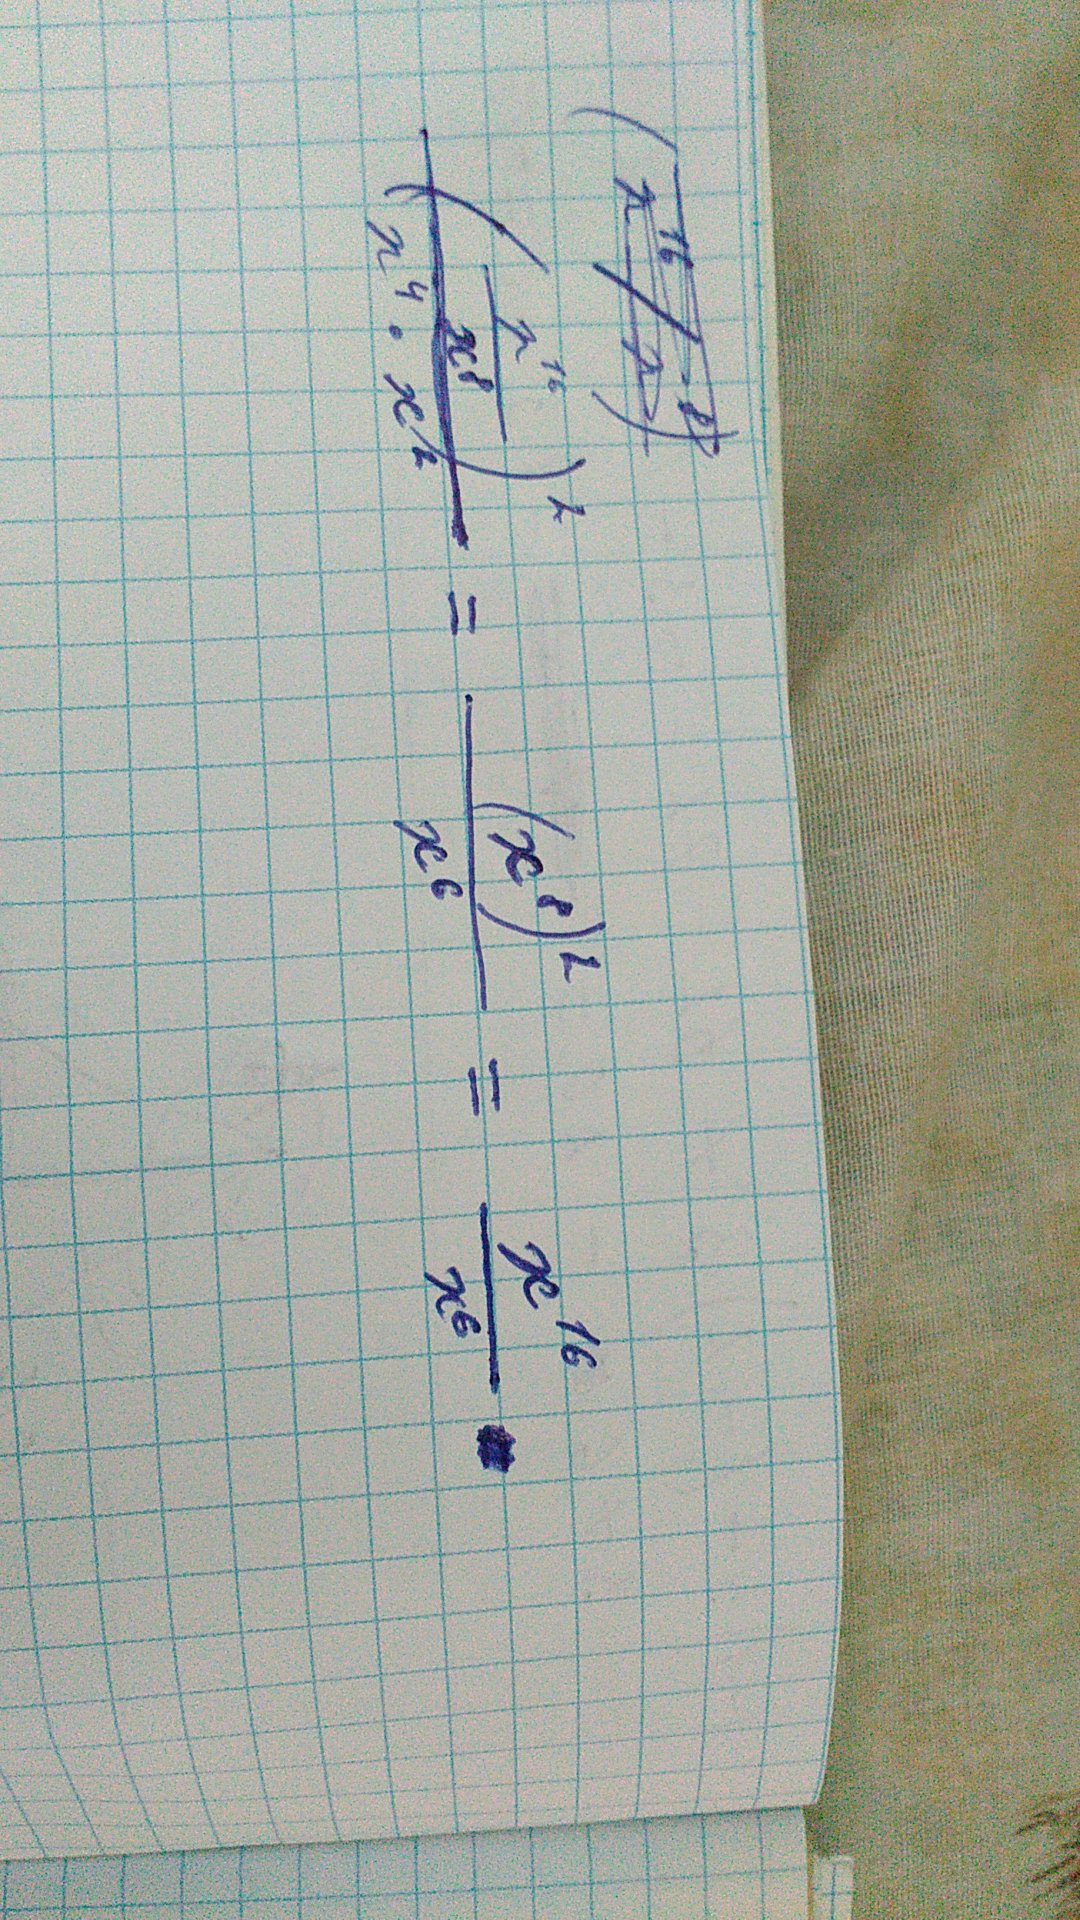 (x¹⁶ / x⁸)² / (x⁴ · x²) = (x⁸)² / x⁶ = x¹⁶ / x⁶